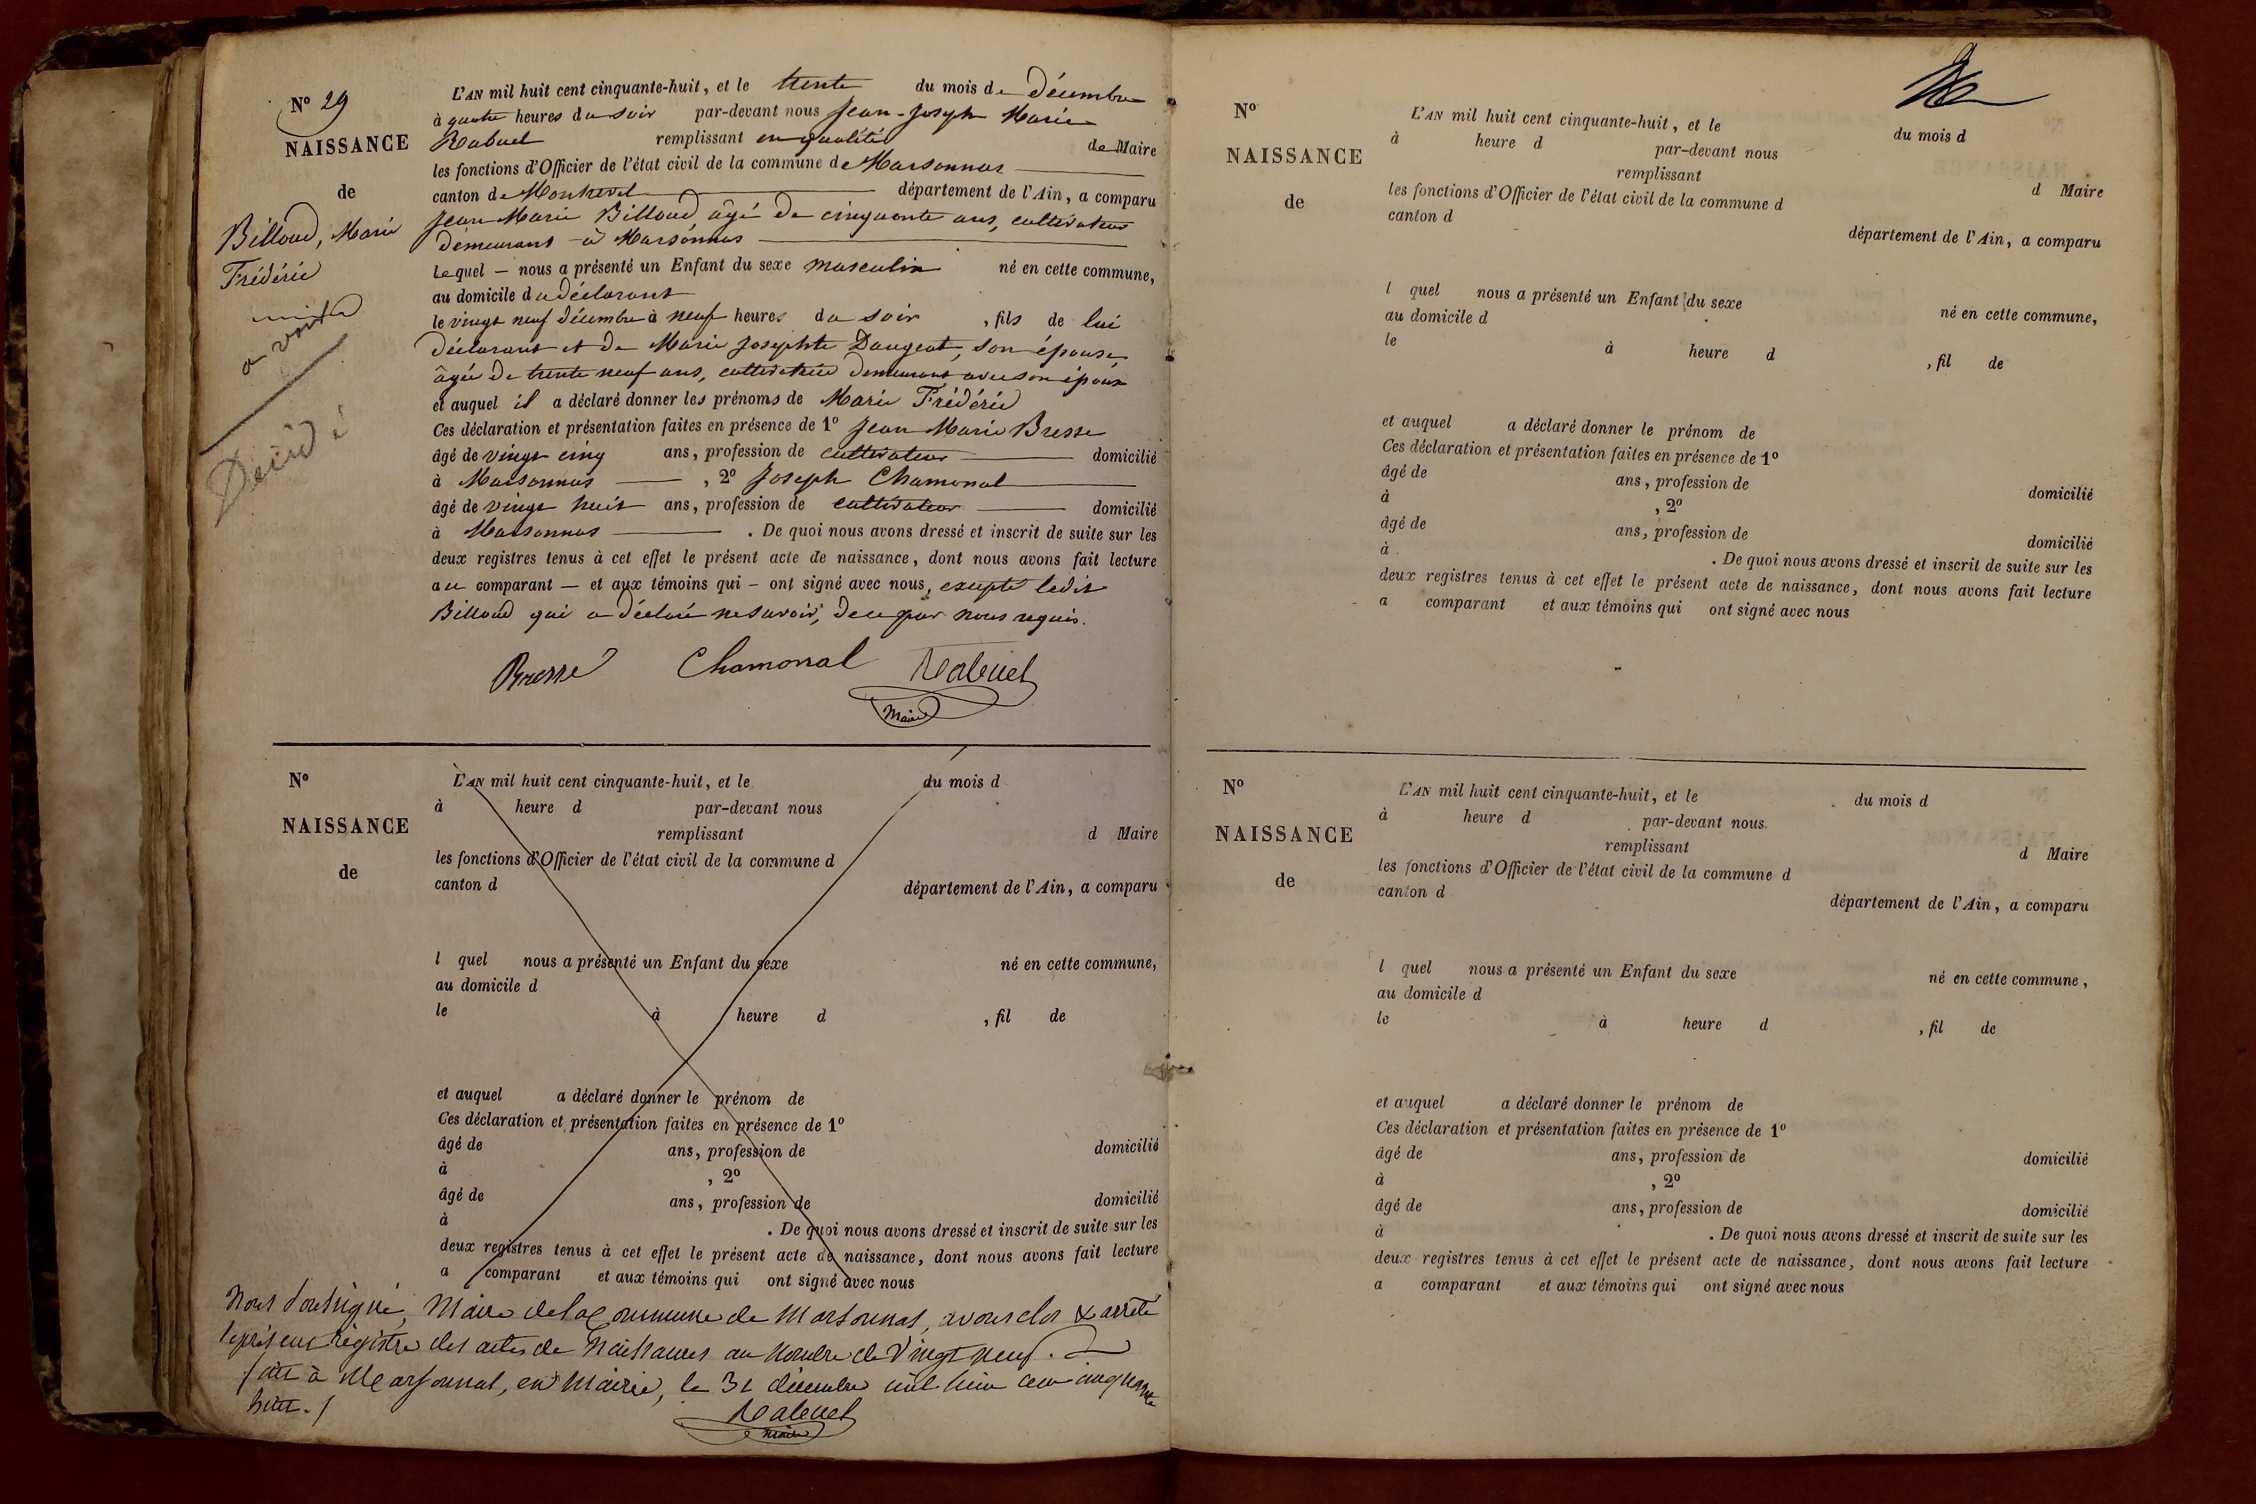 N° 29
NAISSANCE
de
Billoud, Marie
Frédéric
a vint
Décédé
L'AN mil huit cent cinquante-huit, et le trente du mois de Décembre
à quatre heures du soir par-devant nous Jean-Joseph Marie
Rabuel remplissant en qualité de Maire
les fonctions d'Officier de l'état civil de la commune de Marsonnas
canton de Montrevel département de l'Ain, a comparu
Jean Marie Billoud âgé de cinquante ans, cultivateur
demeurant à Marsonnas
Lequel — nous a présenté un Enfant du sexe masculin né en cette commune,
au domicile du déclarant
le vingt neuf décembre à neuf heures du soir, fils de lui
déclarant et de Marie Josephte Daugeat, son épouse
âgée de trente neuf ans, cultivatrice demeurant avec son époux
et auquel il a déclaré donner les prénoms de Marie Frédéric
Ces déclaration et présentation faites en présence de 1° Jean Marie Bresse
âgé de vingt cinq ans, profession de cultivateur domicilié
à Marsonnas, 2° Joseph Chamonal
âgé de vingt huit ans, profession de cultivateur domicilié
à Marsonnas. De quoi nous avons dressé et inscrit de suite sur les
deux registres tenus à cet effet le présent acte de naissance, dont nous avons fait lecture
au comparant — et aux témoins qui — ont signé avec nous, excepté ledit
Billoud qui a déclaré ne savoir, de ce par nous requis.
Bresse Chamonal Rabuel
Maire
N°
NAISSANCE
de
L'AN mil huit cent cinquante-huit, et le du mois d
à heure d par-devant nous
remplissant d Maire
les fonctions d'Officier de l'état civil de la commune d
canton d département de l'Ain, a comparu
l quel nous a présenté un Enfant du sexe né en cette commune,
au domicile d
le à heure d , fil de
et auquel a déclaré donner le prénom de
Ces déclaration et présentation faites en présence de 1°
âgé de ans, profession de domicilié
à , 2°
âgé de ans, profession de domicilié
à . De quoi nous avons dressé et inscrit de suite sur les
deux registres tenus à cet effet le présent acte de naissance, dont nous avons fait lecture
a comparant et aux témoins qui ont signé avec nous
Nous soussigné, Maire de la Commune de Marsonnas, avons clos & arrêté
le présent registre des actes de Naissances au nombre de Vingt neuf.
fait à Marsonnas, en Mairie, le 31 décembre mil huit cent cinquante
huit./
Rabuel
Maire
N°
NAISSANCE
de
L'AN mil huit cent cinquante-huit, et le du mois d
à heure d par-devant nous
remplissant d Maire
les fonctions d'Officier de l'état civil de la commune d
canton d département de l'Ain, a comparu
l quel nous a présenté un Enfant du sexe né en cette commune,
au domicile d
le à heure d , fil de
et auquel a déclaré donner le prénom de
Ces déclaration et présentation faites en présence de 1°
âgé de ans, profession de domicilié
à , 2°
âgé de ans, profession de domicilié
à . De quoi nous avons dressé et inscrit de suite sur les
deux registres tenus à cet effet le présent acte de naissance, dont nous avons fait lecture
a comparant et aux témoins qui ont signé avec nous
N°
NAISSANCE
de
L'AN mil huit cent cinquante-huit, et le du mois d
à heure d par-devant nous
remplissant d Maire
les fonctions d'Officier de l'état civil de la commune d
canton d département de l'Ain, a comparu
l quel nous a présenté un Enfant du sexe né en cette commune,
au domicile d
le à heure d , fil de
et auquel a déclaré donner le prénom de
Ces déclaration et présentation faites en présence de 1°
âgé de ans, profession de domicilié
à , 2°
âgé de ans, profession de domicilié
à . De quoi nous avons dressé et inscrit de suite sur les
deux registres tenus à cet effet le présent acte de naissance, dont nous avons fait lecture
a comparant et aux témoins qui ont signé avec nous